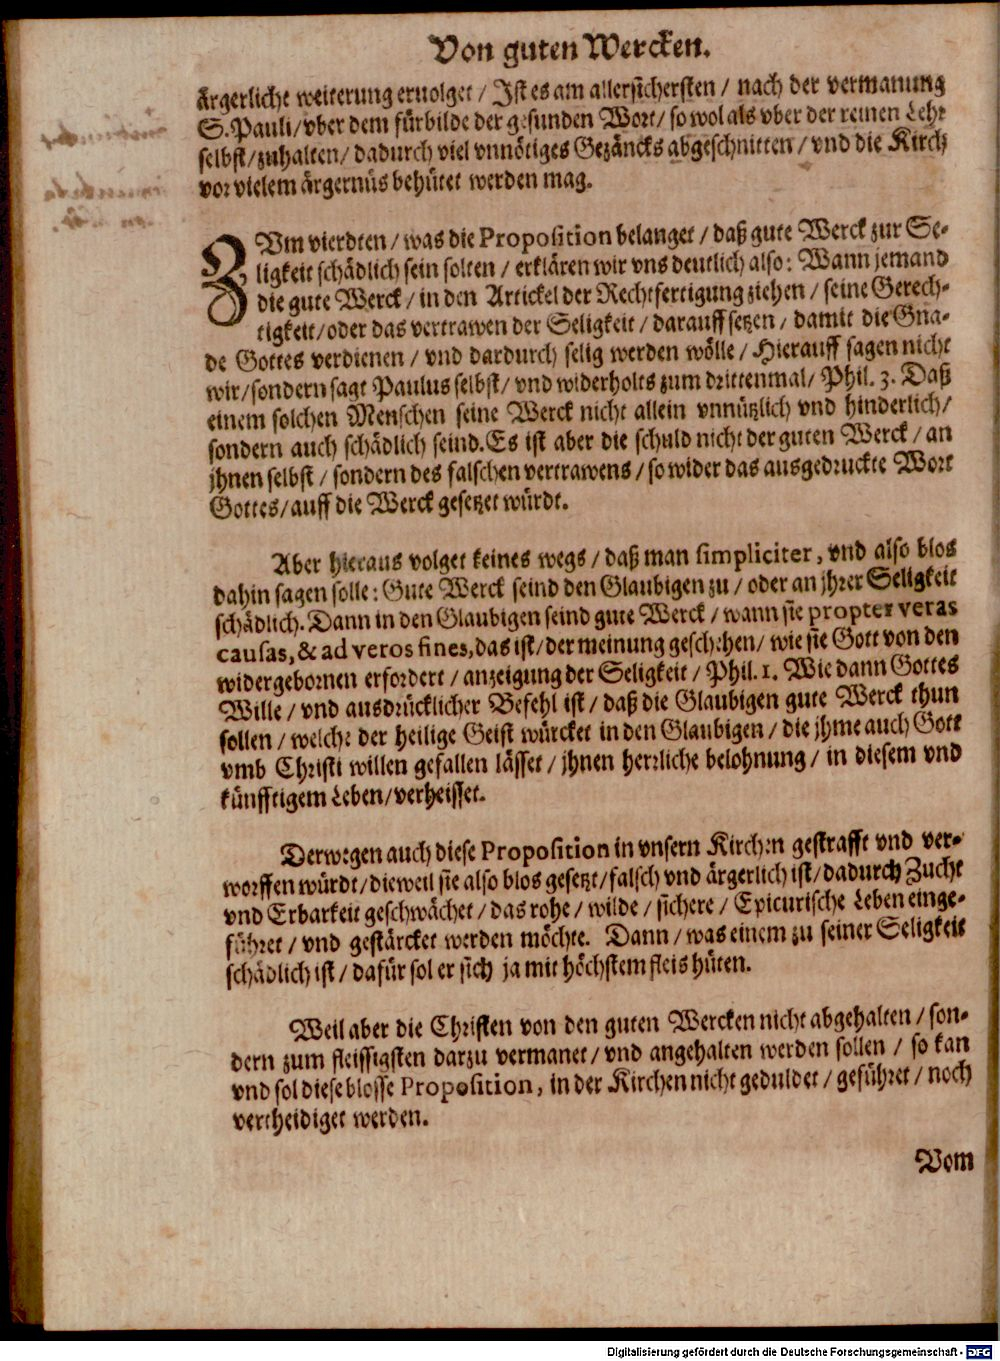 Von guten Wercken.
ärgerliche weiterung eruolget / Ist es am allersichersten / nach der vermanung
S. Pauli / vber dem fürbilde der gesunden Wort / so wol als vber der reinen Lehr
selbst / zuhalten / dadurch viel vnnötiges Gezäncks abgeschnitten / vnd die Kirch
vor vielem ärgernüs behütet werden mag.
ZVm vierdten / was die Proposition belanget / daß gute Werck zur Se-
ligkeit schädlich sein solten / erklären wir vns deutlich also: Wann jemand
die gute Werck / in den Artickel der Rechtfertigung ziehen / seine Gerech-
tigkeit / oder das vertrawen der Seligkeit / darauff setzen / damit die Gna-
de Gottes verdienen / vnd dardurch selig werden wölle / Hierauff sagen nicht
wir / sondern sagt Paulus selbst / vnd widerholts zum drittenmal / Phil. 3. Daß
einem solchen Menschen seine Werck nicht allein vnnützlich vnd hinderlich /
sondern auch schädlich seind. Es ist aber die schuld nicht der guten Werck / an
jhnen selbst / sondern des falschen vertrawens / so wider das ausgedruckte Wort
Gottes / auff die Werck gesetzet würdt.
Aber hieraus volget keines wegs / daß man simpliciter, vnd also blos
dahin sagen solle: Gute Werck seind den Glaubigen zu / oder an jhrer Seligkeit
schädlich. Dann in den Glaubigen seind gute Werck / wann sie propter veras
causas, & ad veros fines, das ist / der meinung geschehen / wie sie Gott von den
widergebornen erfordert / anzeigung der Seligkeit / Phil. 1. Wie dann Gottes
Wille / vnd ausdrücklicher Befehl ist / daß die Glaubigen gute Werck thun
sollen / welche der heilige Geist würcket in den Glaubigen / die jhme auch Gott
vmb Christi willen gefallen lässet / jhnen herrliche belohnung / in diesem vnd
künfftigem Leben / verheisset.
Derwegen auch diese Proposition in vnsern Kirchen gestrafft vnd ver-
worffen würdt / dieweil sie also blos gesetzt / falsch vnd ärgerlich ist / dadurch Zucht
vnd Erbarkeit geschwächet / das rohe / wilde / sichere / Epicurische Leben einge-
führet / vnd gestärcket werden möchte. Dann / was einem zu seiner Seligkeit
schädlich ist / dafür sol er sich ja mit höchstem fleis hüten.
Weil aber die Christen von den guten Wercken nicht abgehalten / son-
dern zum fleissigsten darzu vermanet / vnd angehalten werden sollen / so kan
vnd sol diese blosse Proposition, in der Kirchen nicht geduldet / geführet / noch
vertheidiget werden.
Vom
Digitalisierung gefördert durch die Deutsche Forschungsgemeinschaft - DFG